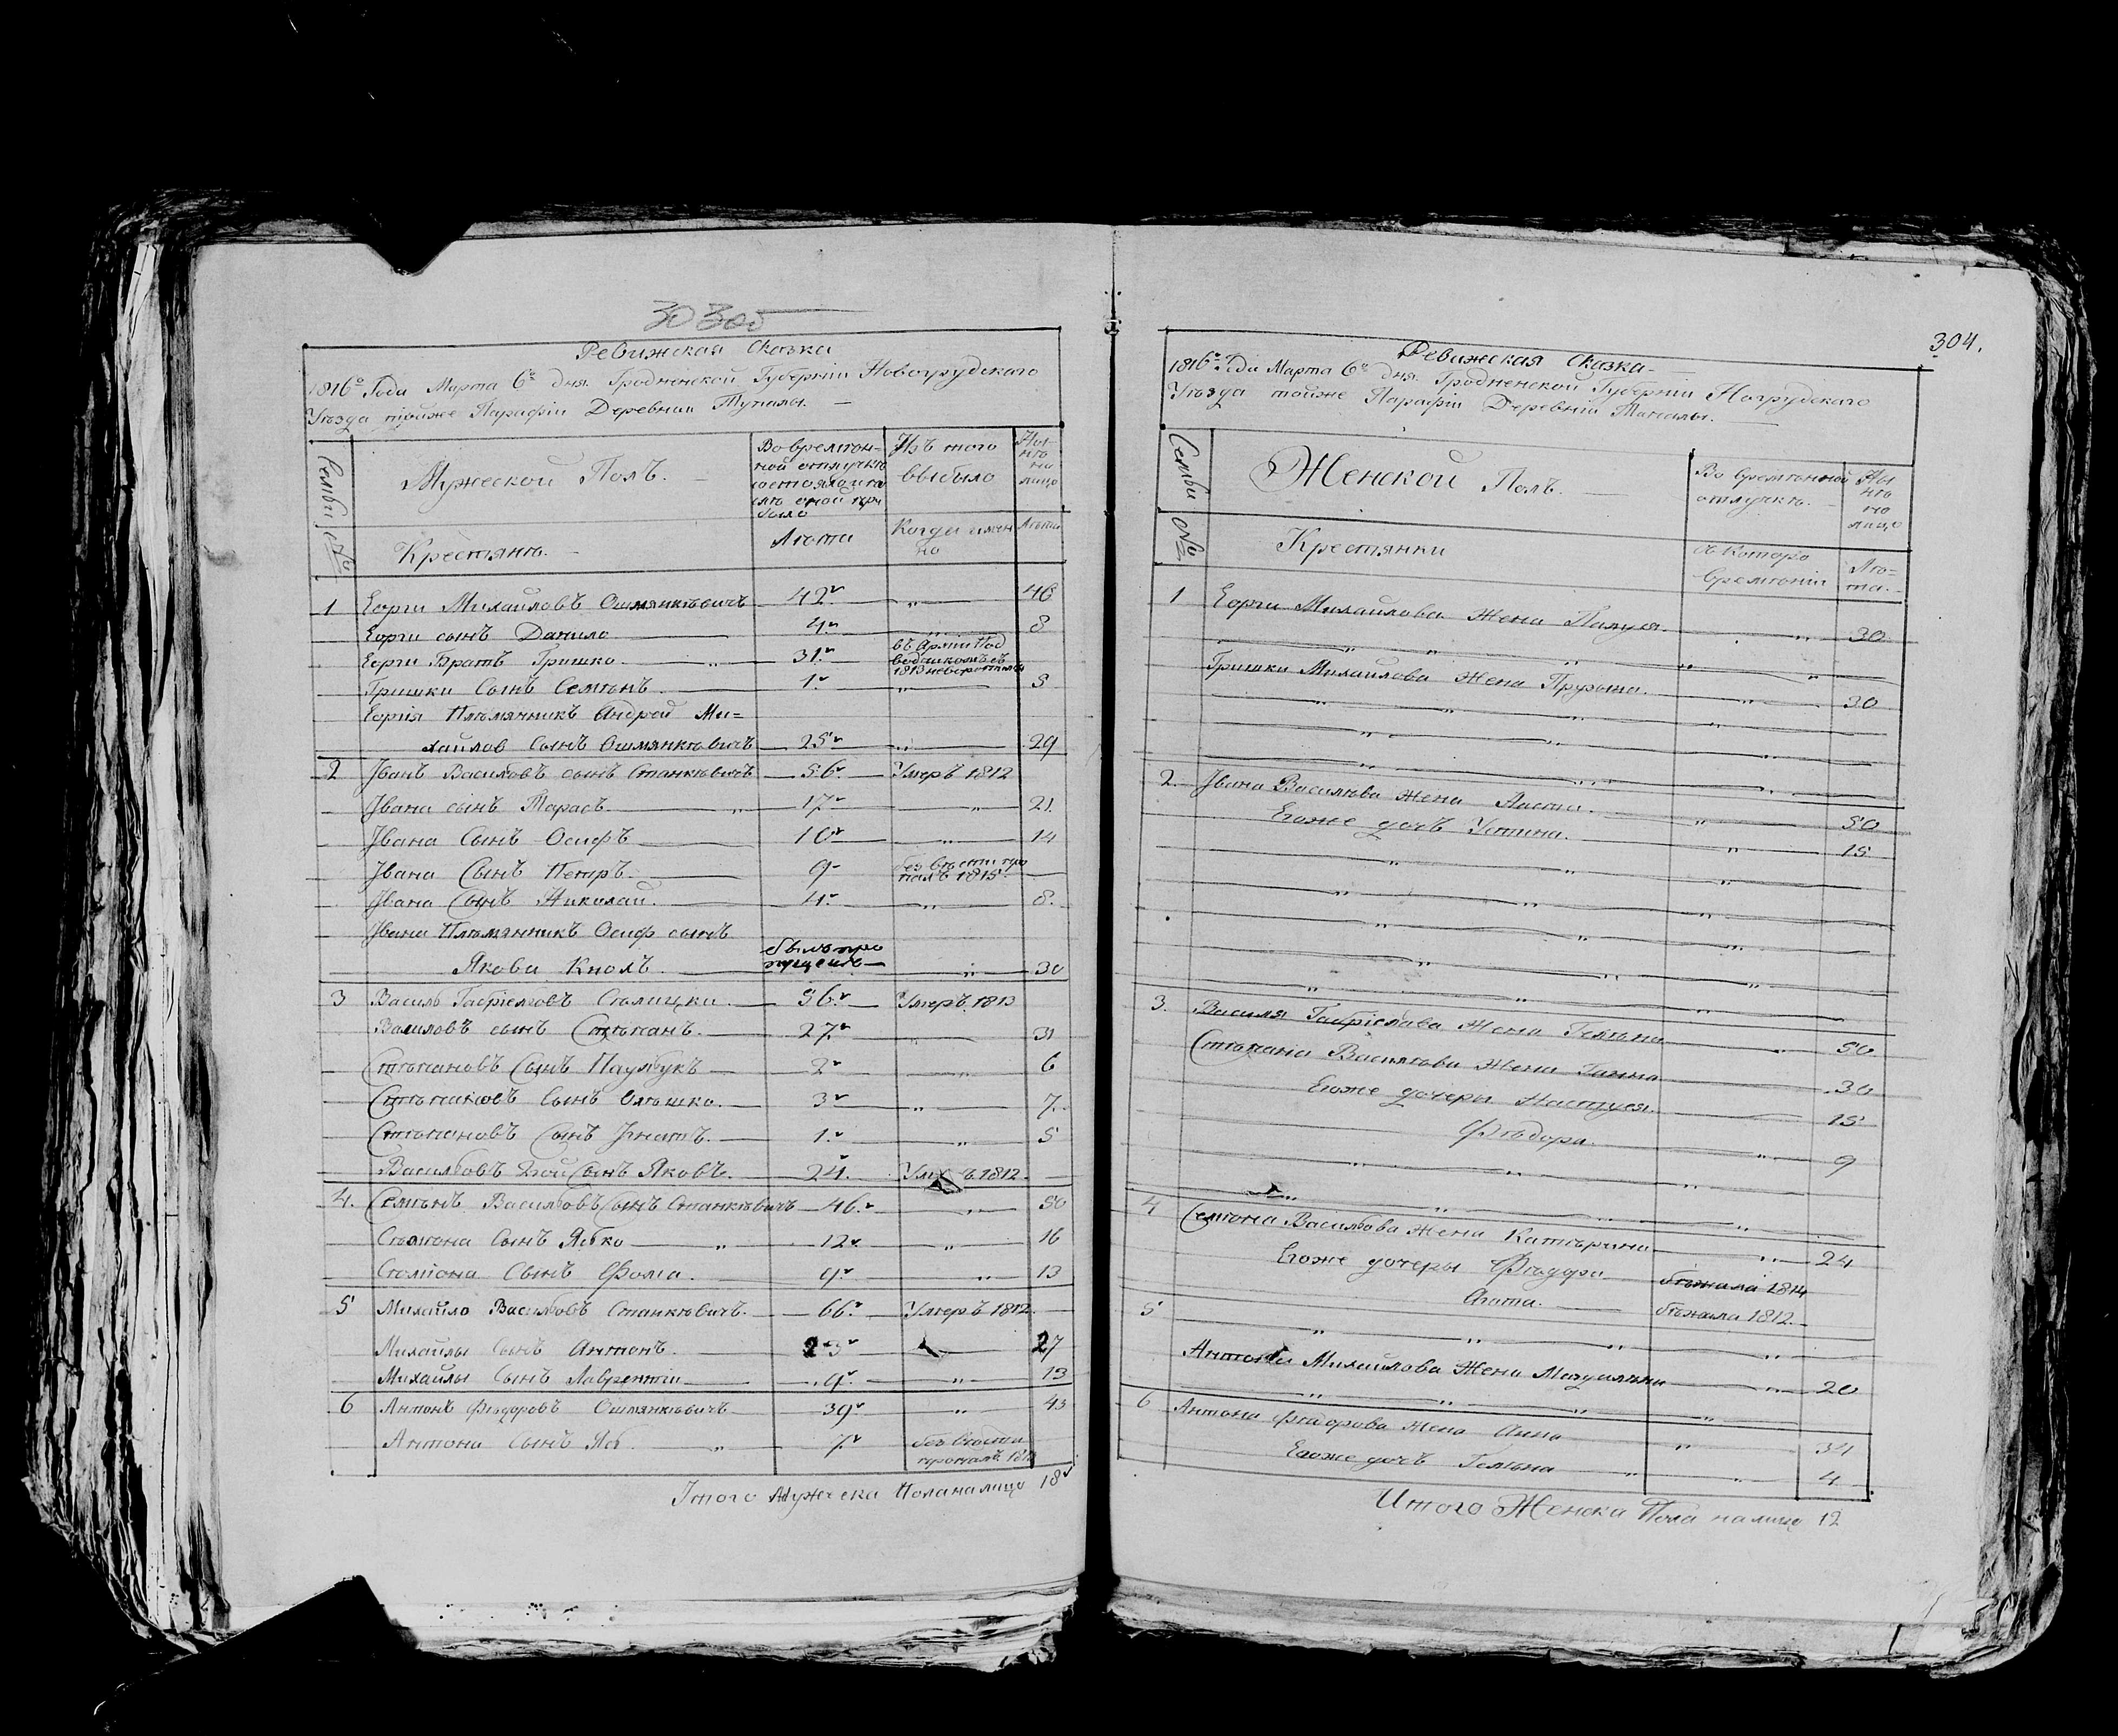 303об
Ревижская Сказка
1816го Года Марта 6го дня. Гродненской Губерніи Новогрудского
Уѣзда тойже Парафіи Деревни Тупалы.
Семьи №
Мужеской Полъ.
Крестянѣ.
Во времѣн-
ной отлучкѣ
Лѣта
Изъ того
выбыло
Когда имен
но
Ны-
нѣ
на
лицо
Лѣта
1 Еорги Михайловъ Ошмянкѣвичъ 42 „ 46
Еорги сынъ Данило 4 „ 8
Еорги Братъ Гришко „ 31 въ Арміи Под
водчикомъ съ
1813 неворотился
Гришки Сынъ Семѣнъ 1 „ 5
Еоргія Плѣмянникъ Андрей Ми=
хайлов Сынъ Ошмянкѣвичъ 25 „ 29
2 Јванъ Васильовъ сынъ Станкѣвичъ 56 Умеръ 1812
Јвана сынъ Тарасъ „ 17 „ 21
Јвана Сынъ Осифъ 10 „ 14
Јвана Сынъ Петръ 9 без вѣсти про
палъ 1815
Јвана Сынъ Николай 4 „ 8
Јвана Плѣмянникъ Осиф сынъ
Якова Кнолъ. „ 30
3 Василь Габріелѣовъ Столицки 56 Умеръ 1813
Василовъ сынъ Стѣпанъ. 27 „ 31
Стѣпановъ Сынъ Паулюкъ 2 „ 6
Стѣпановъ Сынъ Олѣшко. 3 „ 7
Стѣпановъ Сынъ Јгнатъ. 1 „ 5
Васильовъ 2гой Сынъ Яковъ. 24 Умеръ 1812.
4. Семѣнъ Васильовъ Сынъ Станкѣвичъ 46 „ 50
Семѣона Сынъ Ябко „ 12 „ 16
Семіона Сынъ Фома. 9 „ 13
5 Михайло Васильовъ Станкѣвичъ. 66 Умеръ 1812
Михайлы Сынъ Антонъ. 23 „ 27
Михайлы Сынъ Лаврентіи 9 „ 13
6 Антонъ Фѣодоровъ Ошмянкѣвичъ 39 „ 43
Антона Сынъ „ 7 без вѣсти
пропалъ
Јтого Мужеска Пола налицо 18
304.
Ревижская Сказка
1816го Года Марта 6го дня. Гродненской Губерніи Ногрудского
Уѣзда тойже Парафіи Деревни
Семьи №
Женской Полъ.
Крестянки
Во времѣнной
отлучкѣ
съ Котораго
времѣнии
Ны
нѣ
на
лицо
Лѣ=
та.
1 Еорги Михайлова Жена Палуся. „ 30
Гришки Михайлова Жена Прузына. „ 30
2. Јвана Василѣва Жена Настя. „ 50
Егоже дочъ Устина. „ 15
3. Василя Габріелѣва Жена Гелѣна „ 50
Стѣпана Василѣова Жена Ганна 30
Егоже дочеры Настуся. 15
Фѣодора. „ 9
4 Семѣона Васильова Жена Катѣрына „ 24
Егоже дочеры Фѣодора бѣжала 1814
Агота. бѣжала 1812.
5
Антона Михайлова Жена Магдалѣна „ 20
6 Антона Фѣодорова Жена Анна „ 34
Егоже дочъ Гелѣна „ 4
Итого Женска Пола налицо 12